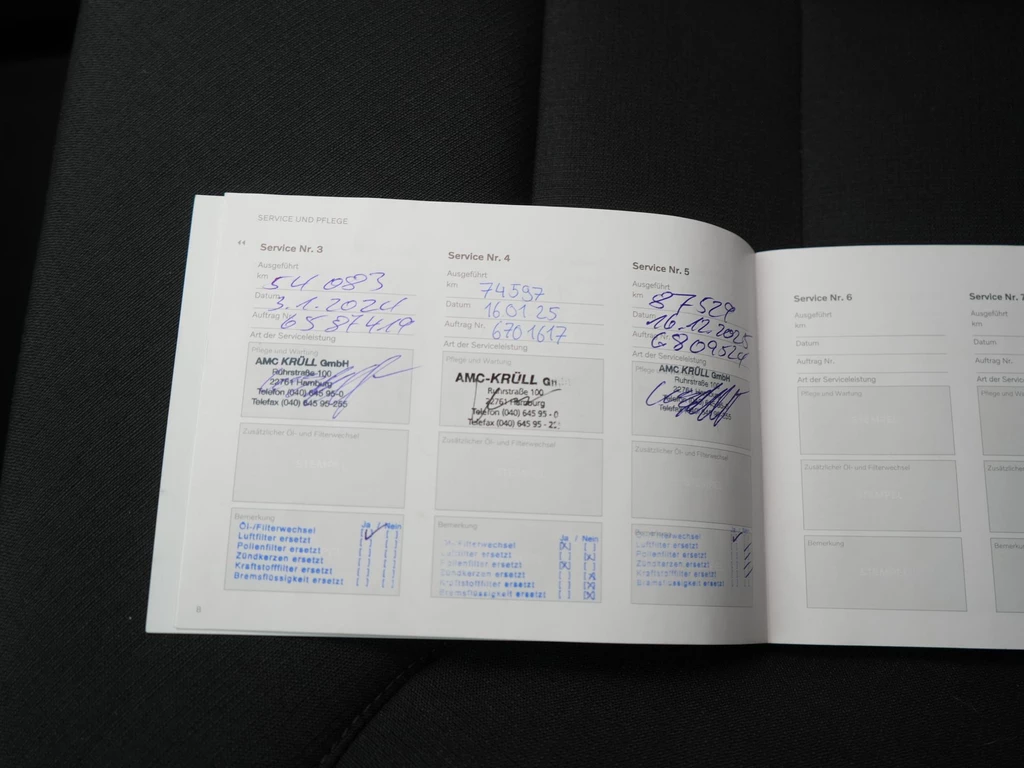 SERVICE UND PFLEGE
“ Service Nr. 3
Ausgeführt
km 54 083
Datum 3.1.2024
Auftrag Nr. 6587419
Art der Serviceleistung
Pflege und Wartung
AMC KRÜLL GmbH
Ruhrstraße 100
22761 Hamburg
Telefon (040) 645 95-0
Telefax (040) 645 95-255
Zusätzlicher Öl- und Filterwechsel
Bemerkung
Ja / Nein
Öl-/Filterwechsel
Luftfilter ersetzt
Pollenfilter ersetzt
Zündkerzen ersetzt
Kraftstoffilter ersetzt
Bremsflüssigkeit ersetzt
8
Service Nr. 4
Ausgeführt
km 74597
Datum 16.01 25
Auftrag Nr. 6701617
Art der Serviceleistung
Pflege und Wartung
AMC-KRÜLL
Ruhrstraße 100
22761 Hamburg
Telefon (040) 645 95 - 0
Telefax (040) 645 95 -
Zusätzlicher Öl- und Filterwechsel
Bemerkung
Ja / Nein
Öl-/Filterwechsel [X] [ ]
Luftfilter ersetzt [ ] [X]
Pollenfilter ersetzt [X] [ ]
Zündkerzen ersetzt [ ] [X]
Kraftstoffilter ersetzt [ ] [X]
Bremsflüssigkeit ersetzt [ ] [X]
Service Nr. 5
Ausgeführt
km 87529
Datum 16.12.2025
Auftrag Nr. 6809524
Art der Serviceleistung
Pflege und Wartung
AMC KRÜLL GmbH
Ruhrstraße 100
22761 Hamburg
Telefon (040) 645
Telefax
Zusätzlicher Öl- und Filterwechsel
Bemerkung
Luftfilter ersetzt
Pollenfilter ersetzt
Zündkerzen ersetzt
Kraftstoffilter ersetzt
Bremsflüssigkeit ersetzt
Service Nr. 6
Ausgeführt
km
Datum
Auftrag Nr.
Art der Serviceleistung
Pflege und Wartung
Zusätzlicher Öl- und Filterwechsel
Bemerkung
Service Nr. 7
Ausgeführt
km
Datum
Auftrag Nr.
Art der
Pflege und
Zusätzlicher